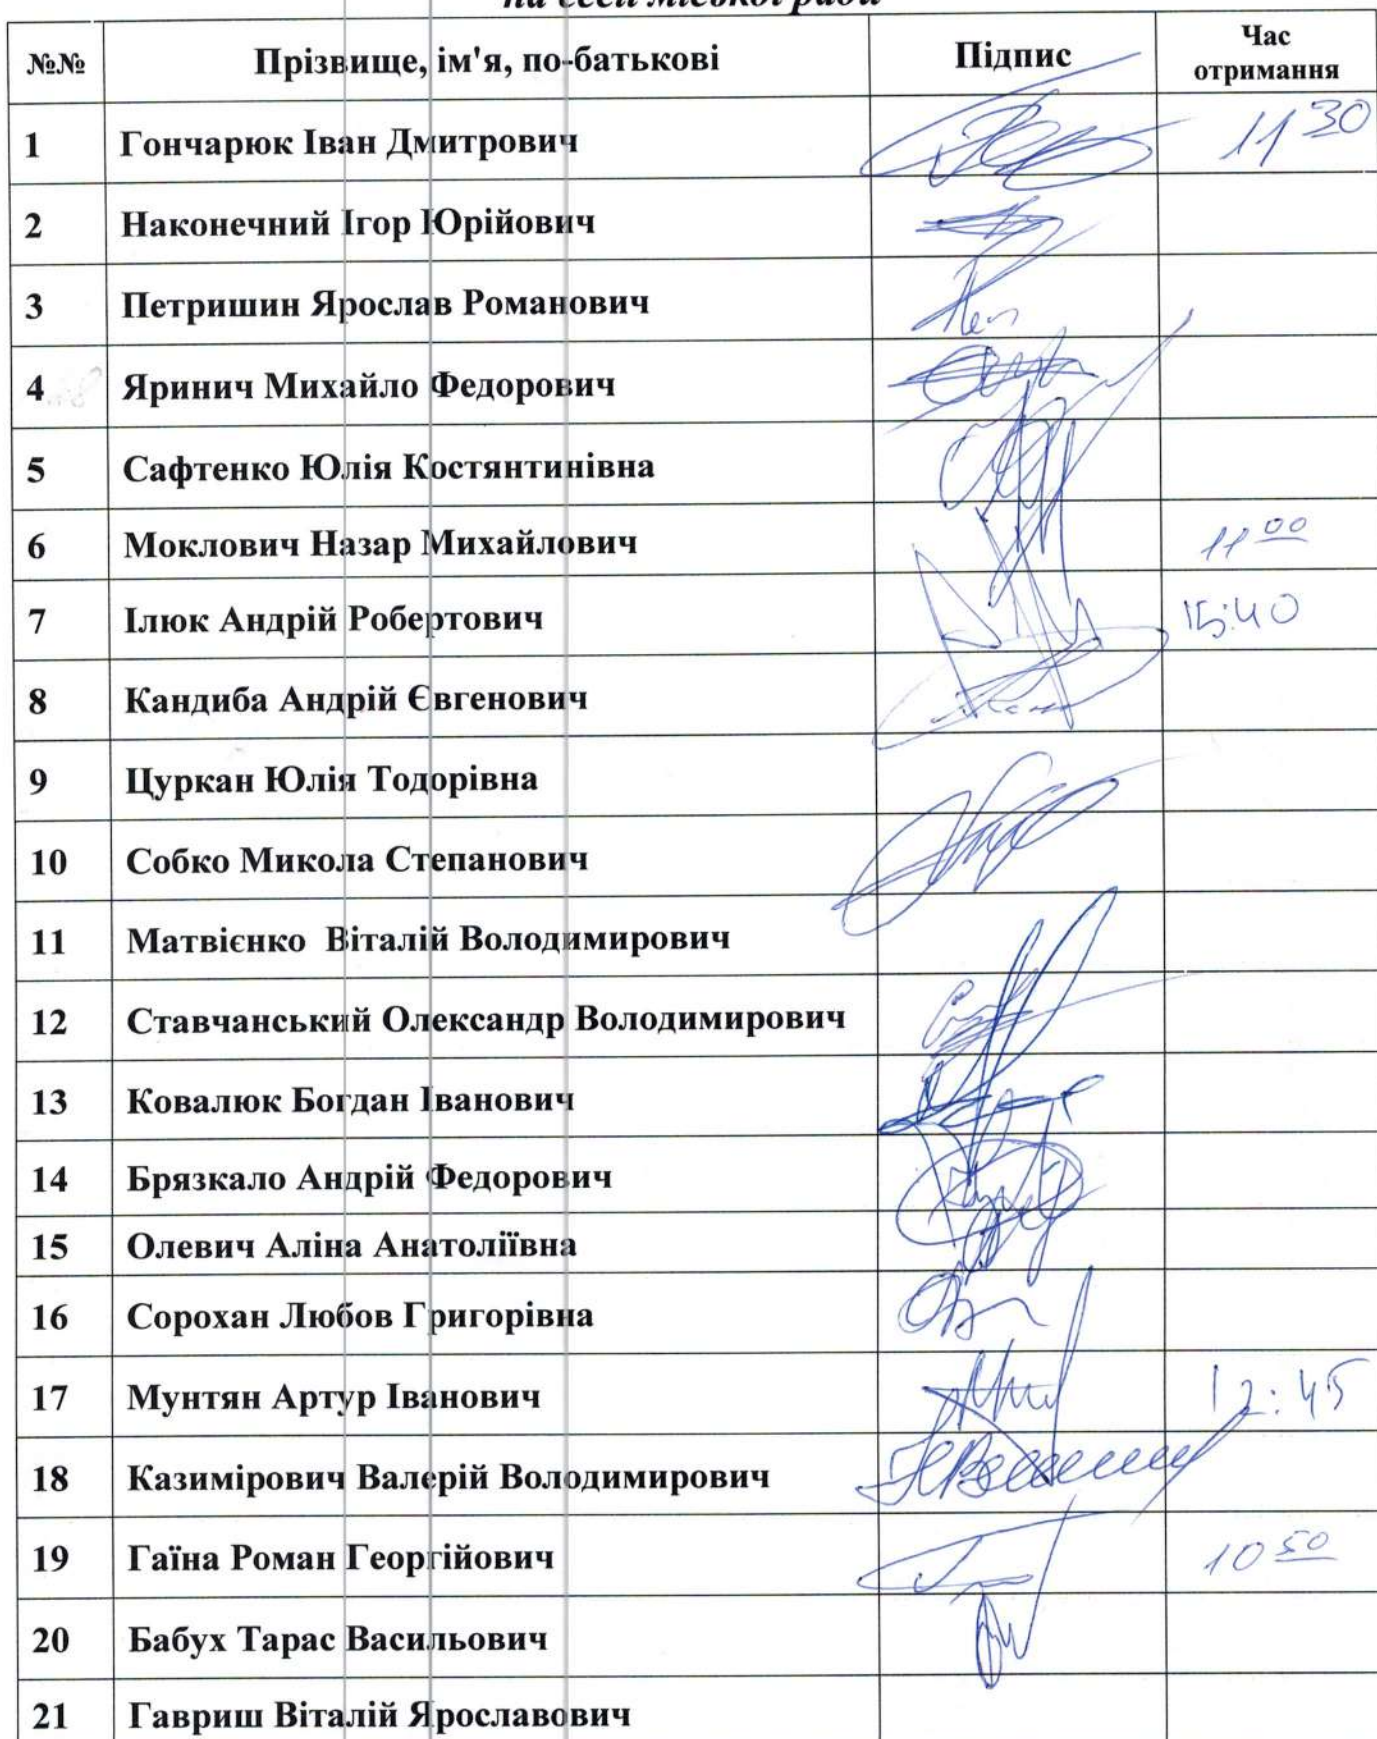 на сесії міської ради
№№ Прізвище, ім'я, по-батькові Підпис Час отримання
1 Гончарюк Іван Дмитрович 11 30
2 Наконечний Ігор Юрійович
3 Петришин Ярослав Романович
4 Яринич Михайло Федорович
5 Сафтенко Юлія Костянтинівна
6 Моклович Назар Михайлович 11 00
7 Ілюк Андрій Робертович 15:40
8 Кандиба Андрій Євгенович
9 Цуркан Юлія Тодорівна
10 Собко Микола Степанович
11 Матвієнко Віталій Володимирович
12 Ставчанський Олександр Володимирович
13 Ковалюк Богдан Іванович
14 Брязкало Андрій Федорович
15 Олевич Аліна Анатоліївна
16 Сорохан Любов Григорівна
17 Мунтян Артур Іванович 12:45
18 Казимірович Валерій Володимирович
19 Гаїна Роман Георгійович 10 50
20 Бабух Тарас Васильович
21 Гавриш Віталій Ярославович